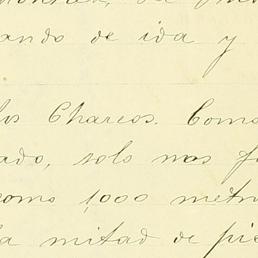 ando de ida y
los Charcos. Como
ado, solo nos f
como 1,000 metr
la mitad de pie